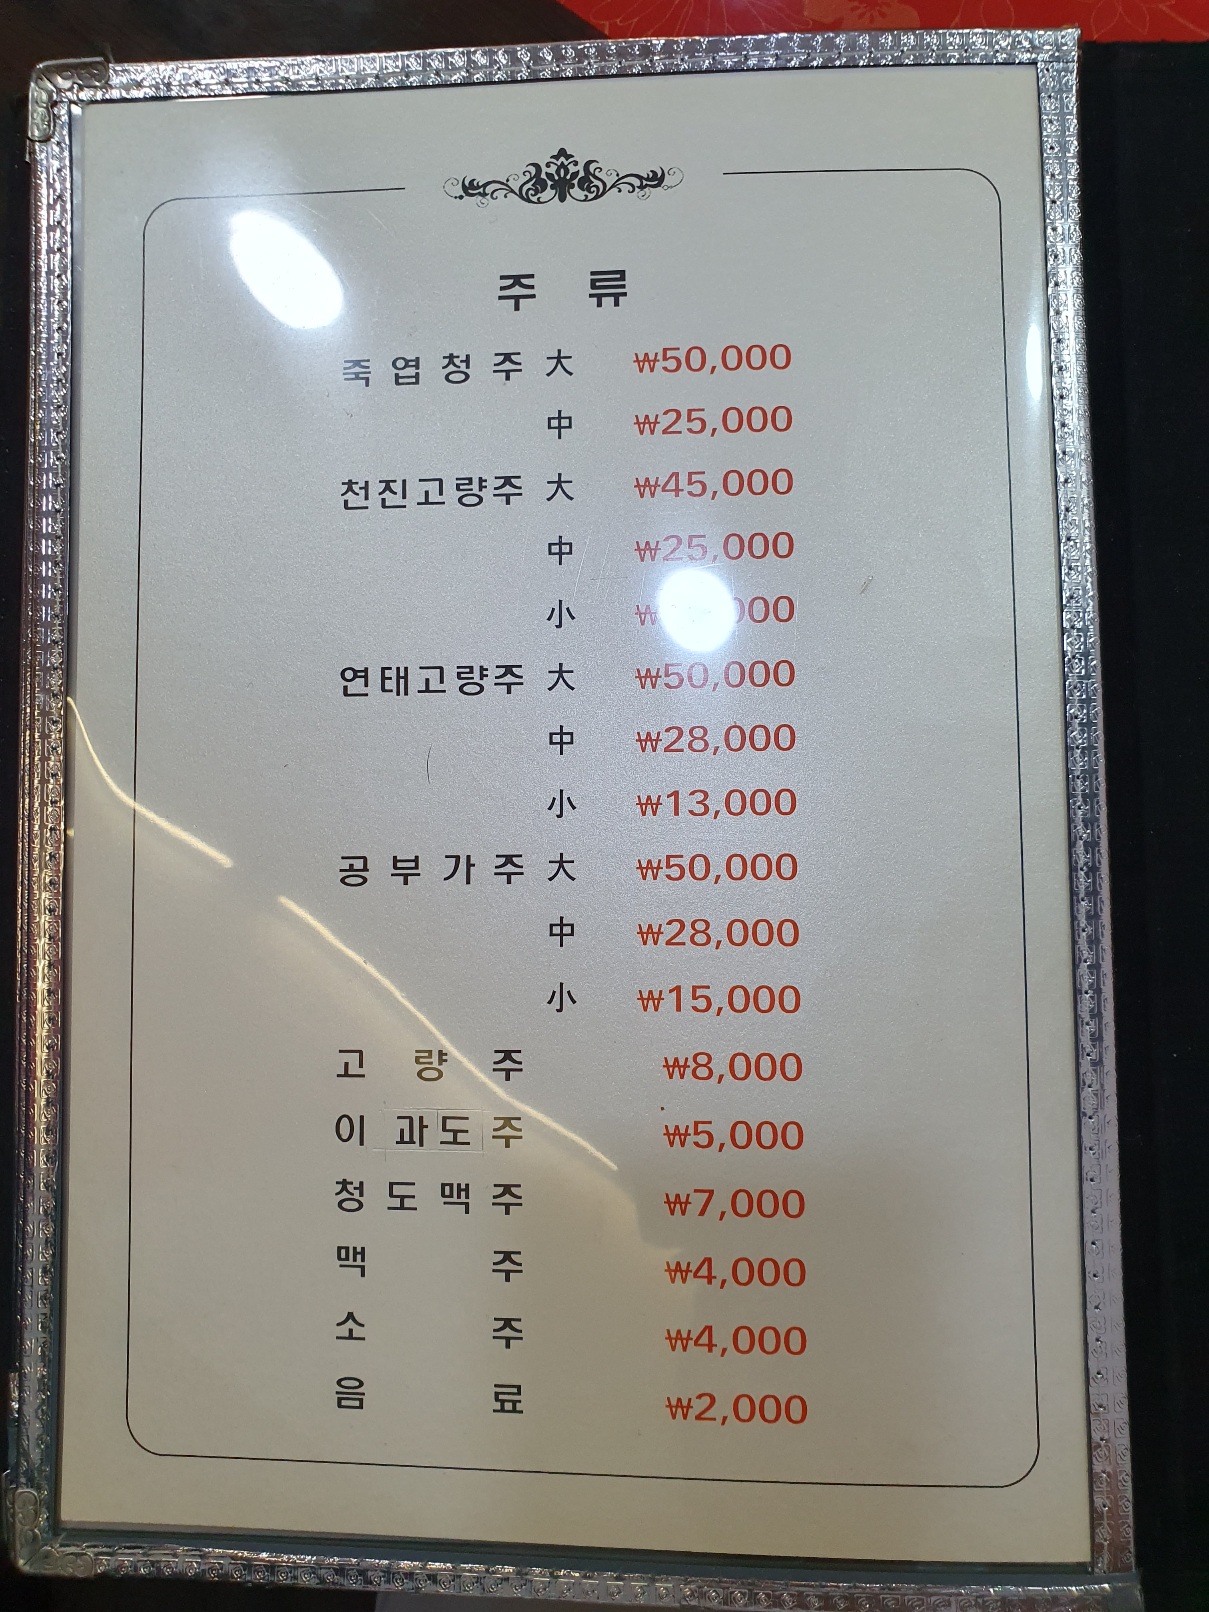 주 류
죽엽청주 大 ₩50,000
中 ₩25,000
천진고량주 大 ₩45,000
中 ₩25,000
小
연태고량주 大 ₩50,000
中 ₩28,000
小 ₩13,000
공부가주 大 ₩50,000
中 ₩28,000
小 ₩15,000
고량주 ₩8,000
이과도주 ₩5,000
청도맥주 ₩7,000
맥주 ₩4,000
소주 ₩4,000
음료 ₩2,000